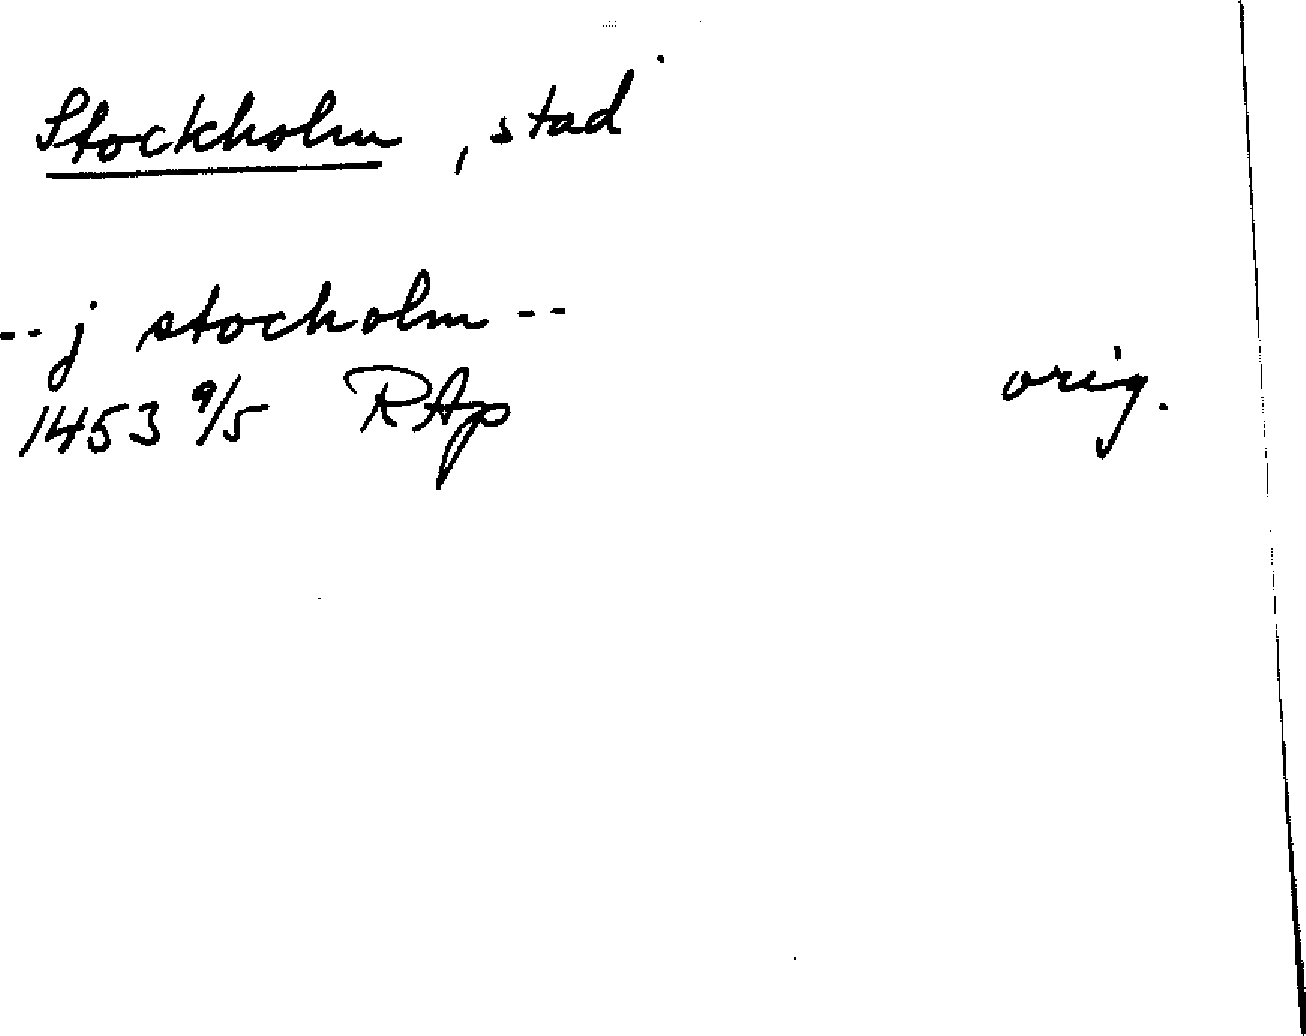 Stockholm, stad
-- j stocholm --
1453 9/5 RAp orig.